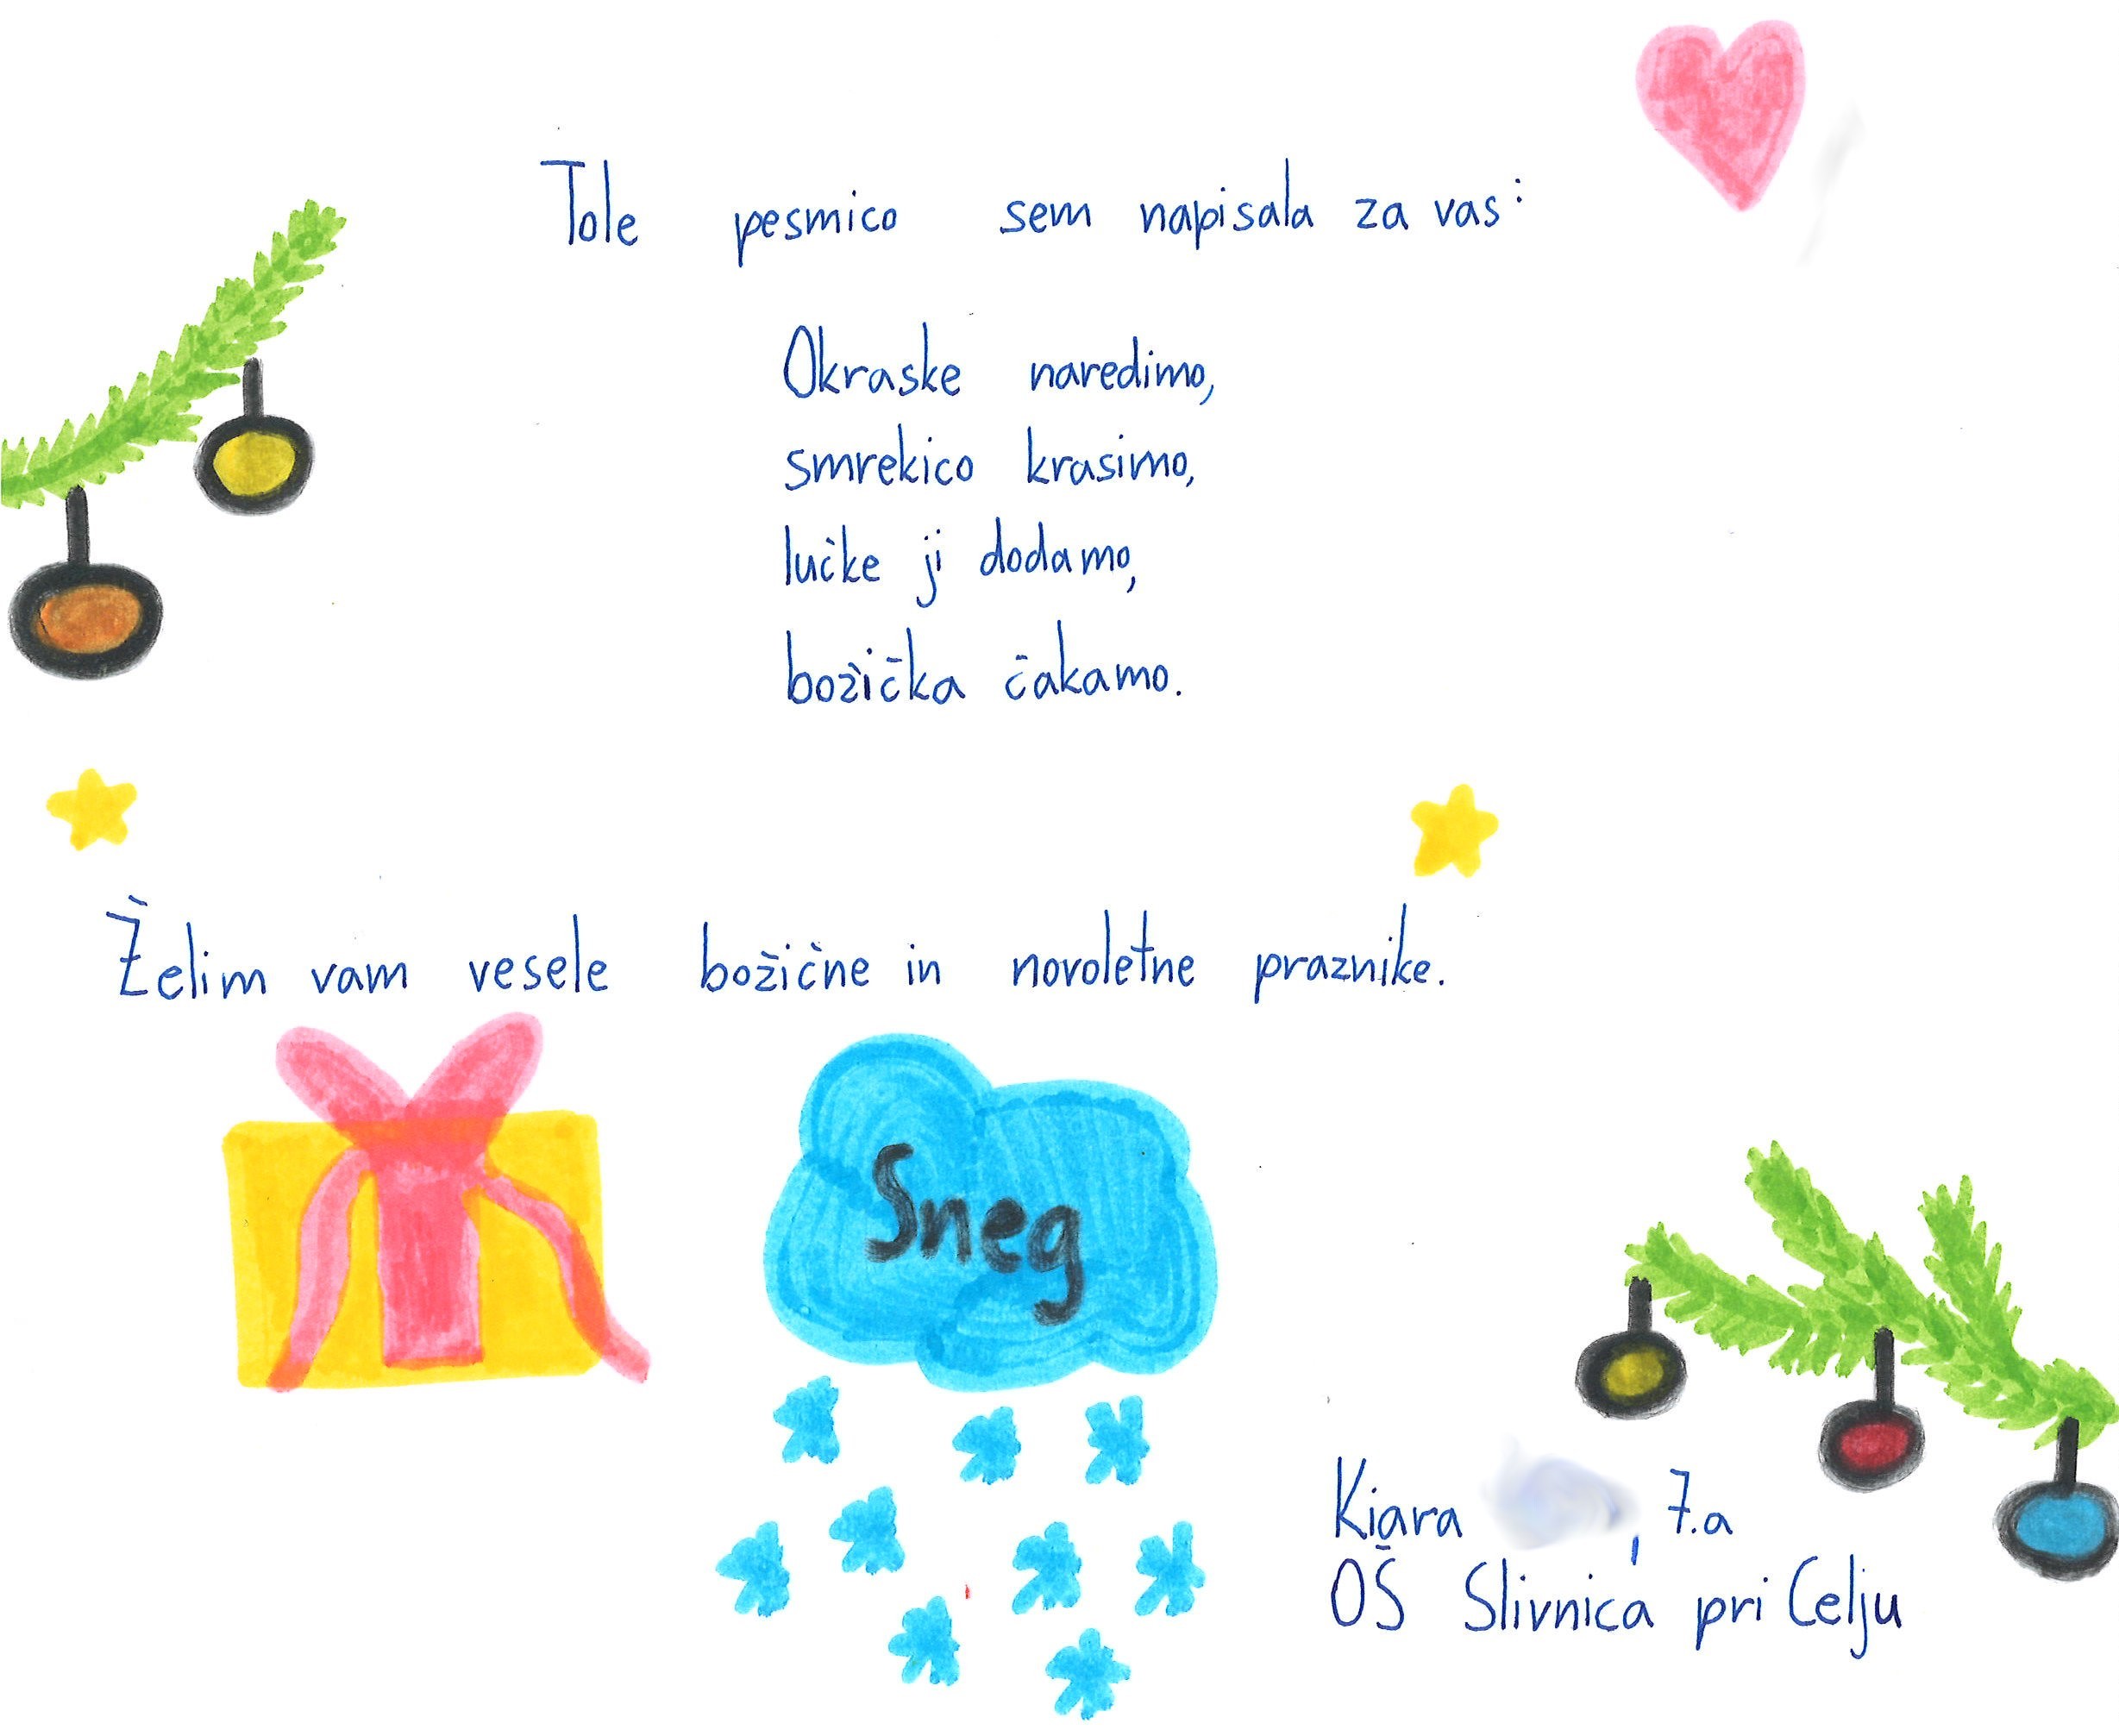 Tole pesmico sem napisala za vas:
Okraske naredimo,
smrekico krasimo,
lučke ji dodamo,
božička čakamo.
Želim vam vesele božične in novoletne praznike.
Sneg
Kiara , 7.a
OŠ Slivnica pri Celju